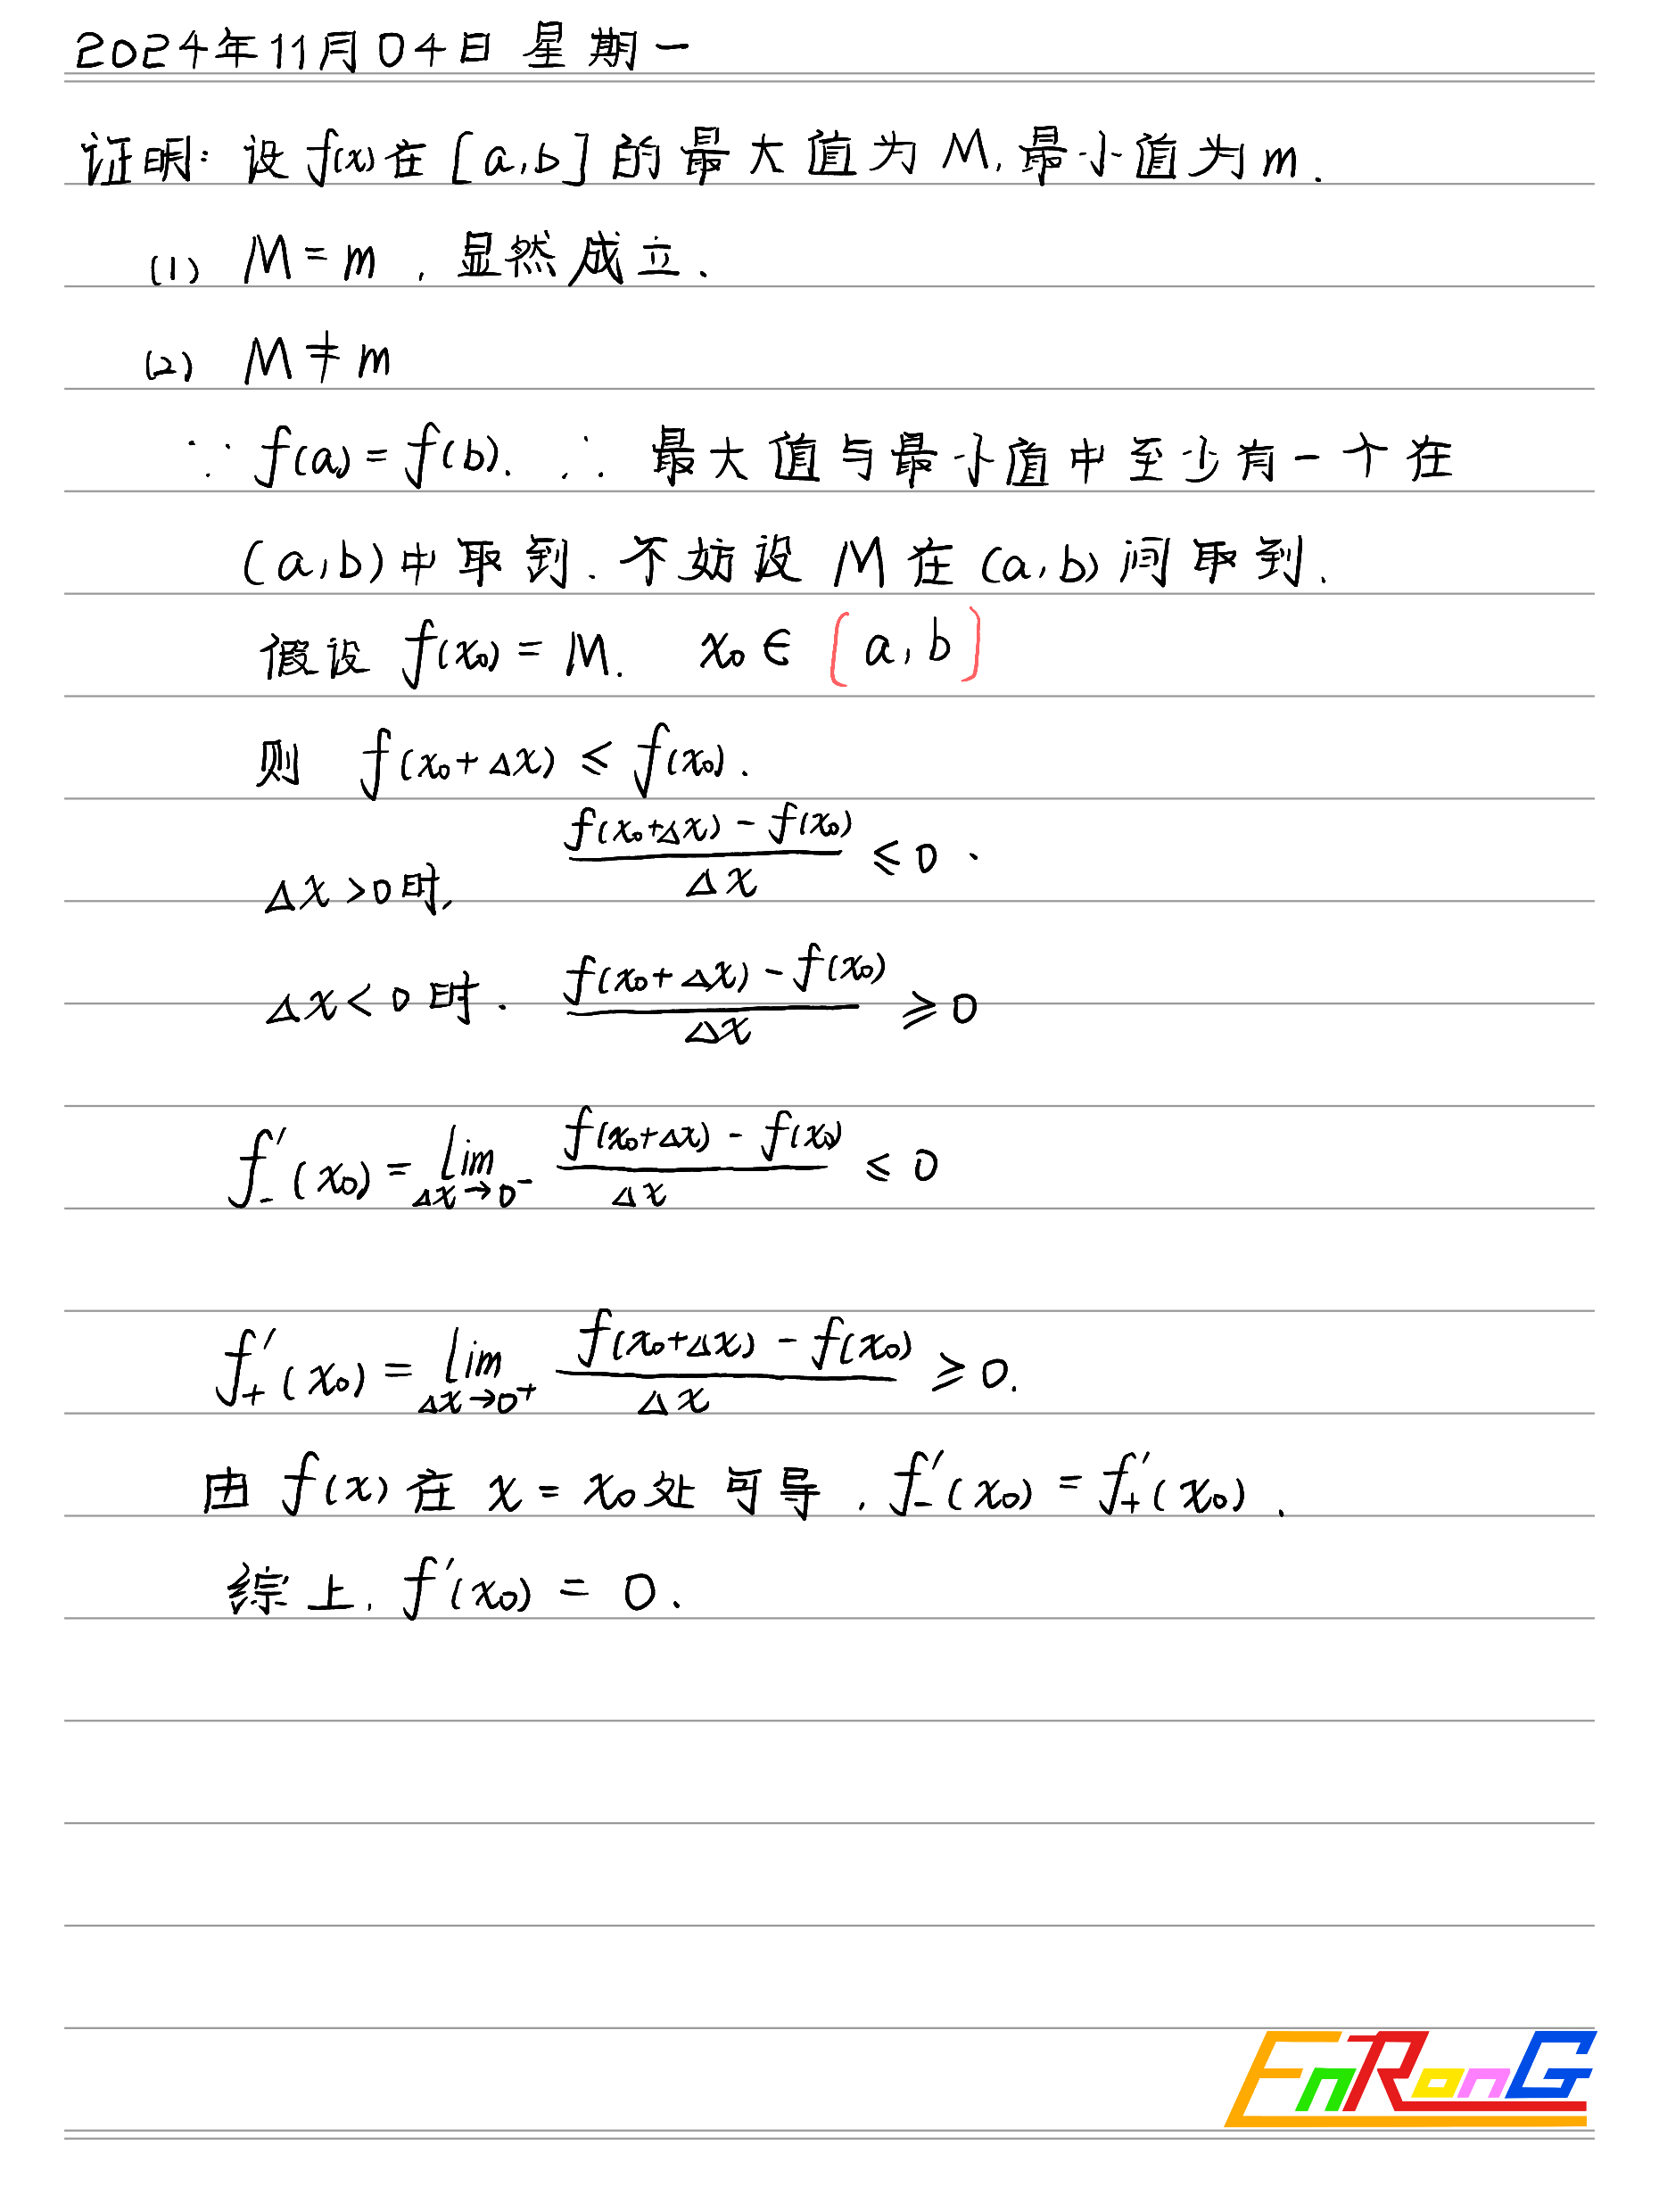 2024年11月04日 星期一
证明: 设 f(x) 在 [a,b] 的最大值为 M, 最小值为 m.
(1) M = m , 显然成立.
(2) M ≠ m
∵ f(a) = f(b). ∴ 最大值与最小值中至少有一个在
(a,b) 中取到. 不妨设 M 在 (a,b) 间取到.
假设 f(x₀) = M. x₀ ∈ [a,b]
则 f(x₀+Δx) ≤ f(x₀).
Δx>0时, (f(x₀+Δx) - f(x₀))/Δx ≤ 0.
Δx<0时. (f(x₀+Δx) - f(x₀))/Δx ≥ 0
f′₋(x₀) = lim Δx→0⁻ (f(x₀+Δx) - f(x₀))/Δx ≤ 0
f′₊(x₀) = lim Δx→0⁺ (f(x₀+Δx) - f(x₀))/Δx ≥ 0.
由 f(x) 在 x = x₀ 处可导, f′₋(x₀) = f′₊(x₀).
综上, f′(x₀) = 0.
EnRonG